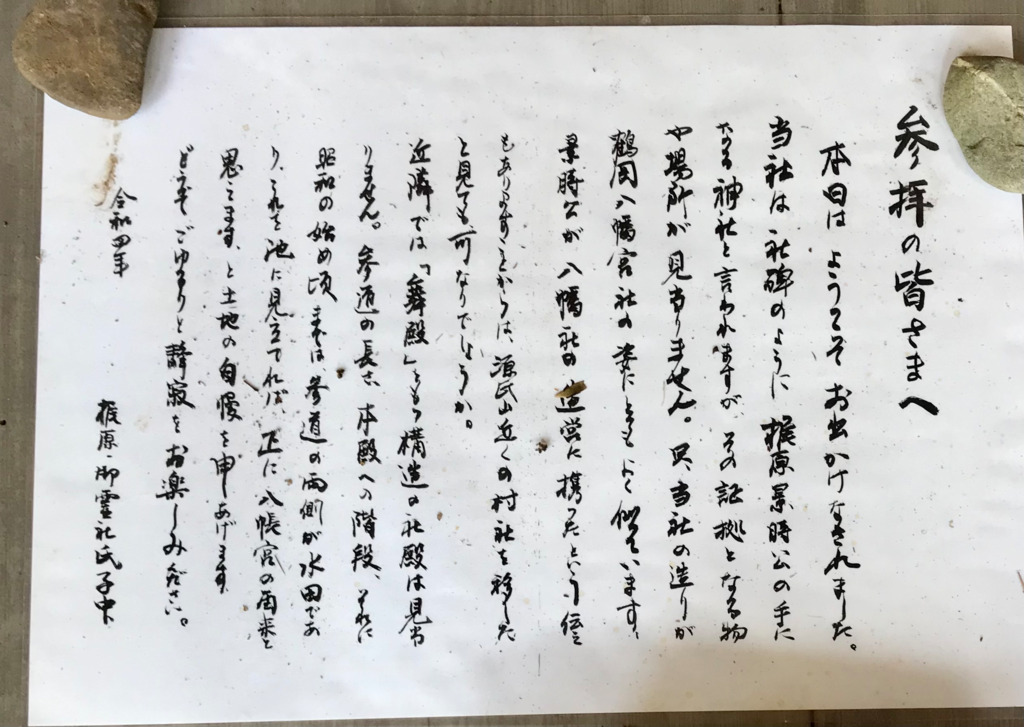 参拝の皆さまへ
本日は ようこそ お出かけなされました。
当社は 社碑のように 梶原景時公の手に
なる神社と言われますが、その証拠となる物
や場所が見当りません。只、当社の造りが
鶴岡八幡宮社の姿にとてもよく似ています。
景時公が八幡社の造営に携ったという伝え
もありますことからは、源氏山近くの村社を移した
と見ても可なりでしょうか。
近隣では「舞殿」をもつ構造の社殿は見当
りません。参道の長さ、本殿への階段、それに
昭和の始め頃までは、参道の両側が水田であ
り、これを池に見立てれば、正に八幡宮の
と
思えます。と土地の自慢を申しあげます。
どうぞ ごゆるりと静寂をお楽しみ下さい。
令和四年
梶原・御霊社氏子中